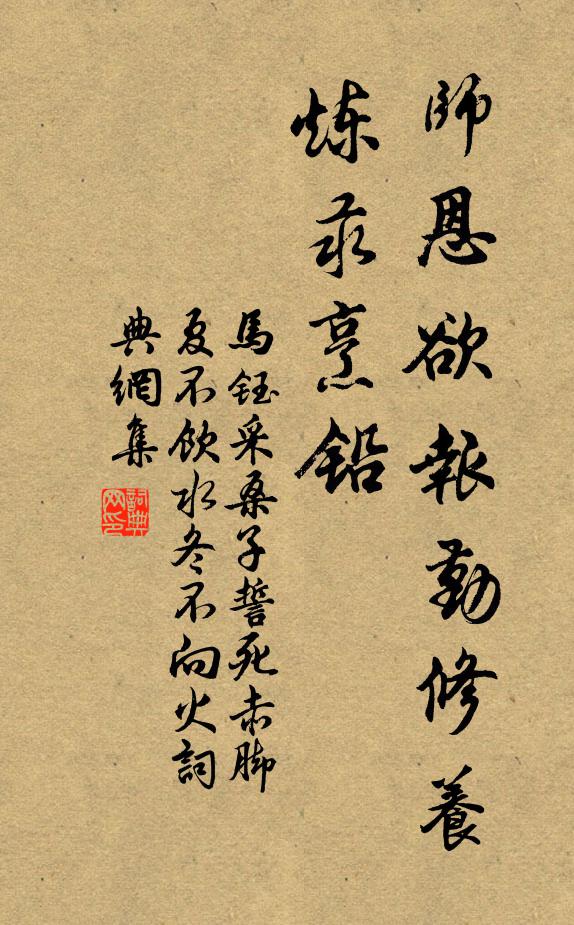 師恩欲報勤修養
炼汞烹铅
馬鈺采桑子誓死赤脚
夏不飲水冬不向火詞
典網集
詞典網印